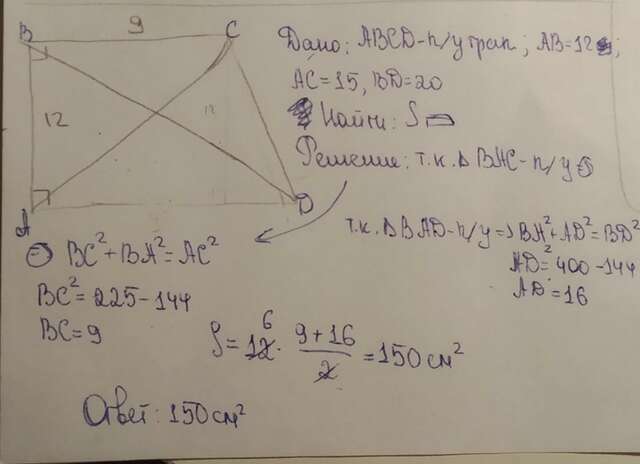 B 9 C
12
A
D
Дано: ABCD-п/у трап; AB=12;
AC=15, BD=20
Найти: S
Решение: т.к. Δ BAC-п/у ⇒
⇒ BC²+BA²=AC²
BC²=225-144
BC=9
т.к. Δ BAD-п/у ⇒ BA²+AD²=BD²
AD²=400-144
AD=16
S=12·(9+16)/2=150 см²
6
Ответ: 150 см²